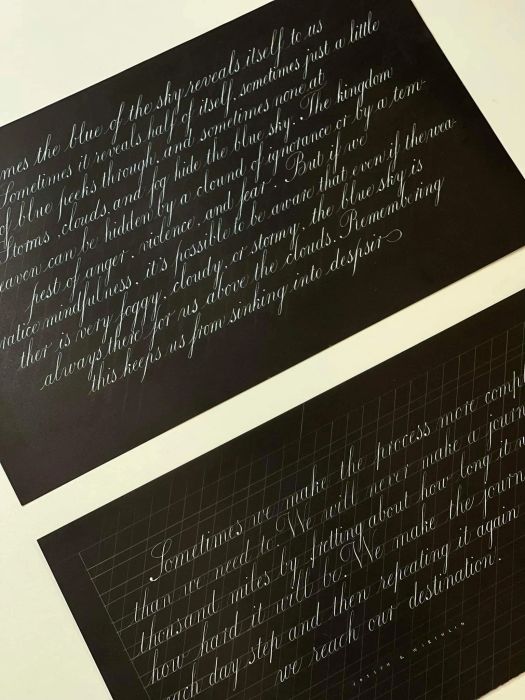 mes the blue of the sky reveals itself to us
Sometimes it reveals half of itself, sometimes just a little
of blue peeks through, and sometimes none at
Storms, clouds, and fog hide the blue sky. The kingdom
eaven can be hidden by a clound of ignorance or by a tem-
pest of anger, violence, and fear. But if we
ratice mindfulness, it's possible to be aware that even if the wea-
ther is very foggy, cloudy, or stormy, the blue sky is
always there for us above the clouds. Remembering
this keeps us from sinking into despsir
Sometimes we make the process more compl
than we need to. We will never make a journ
thousand miles by fretting about how long it w
how hard it will be. We make the journ
each day step and then repeating it again
we reach our destination.